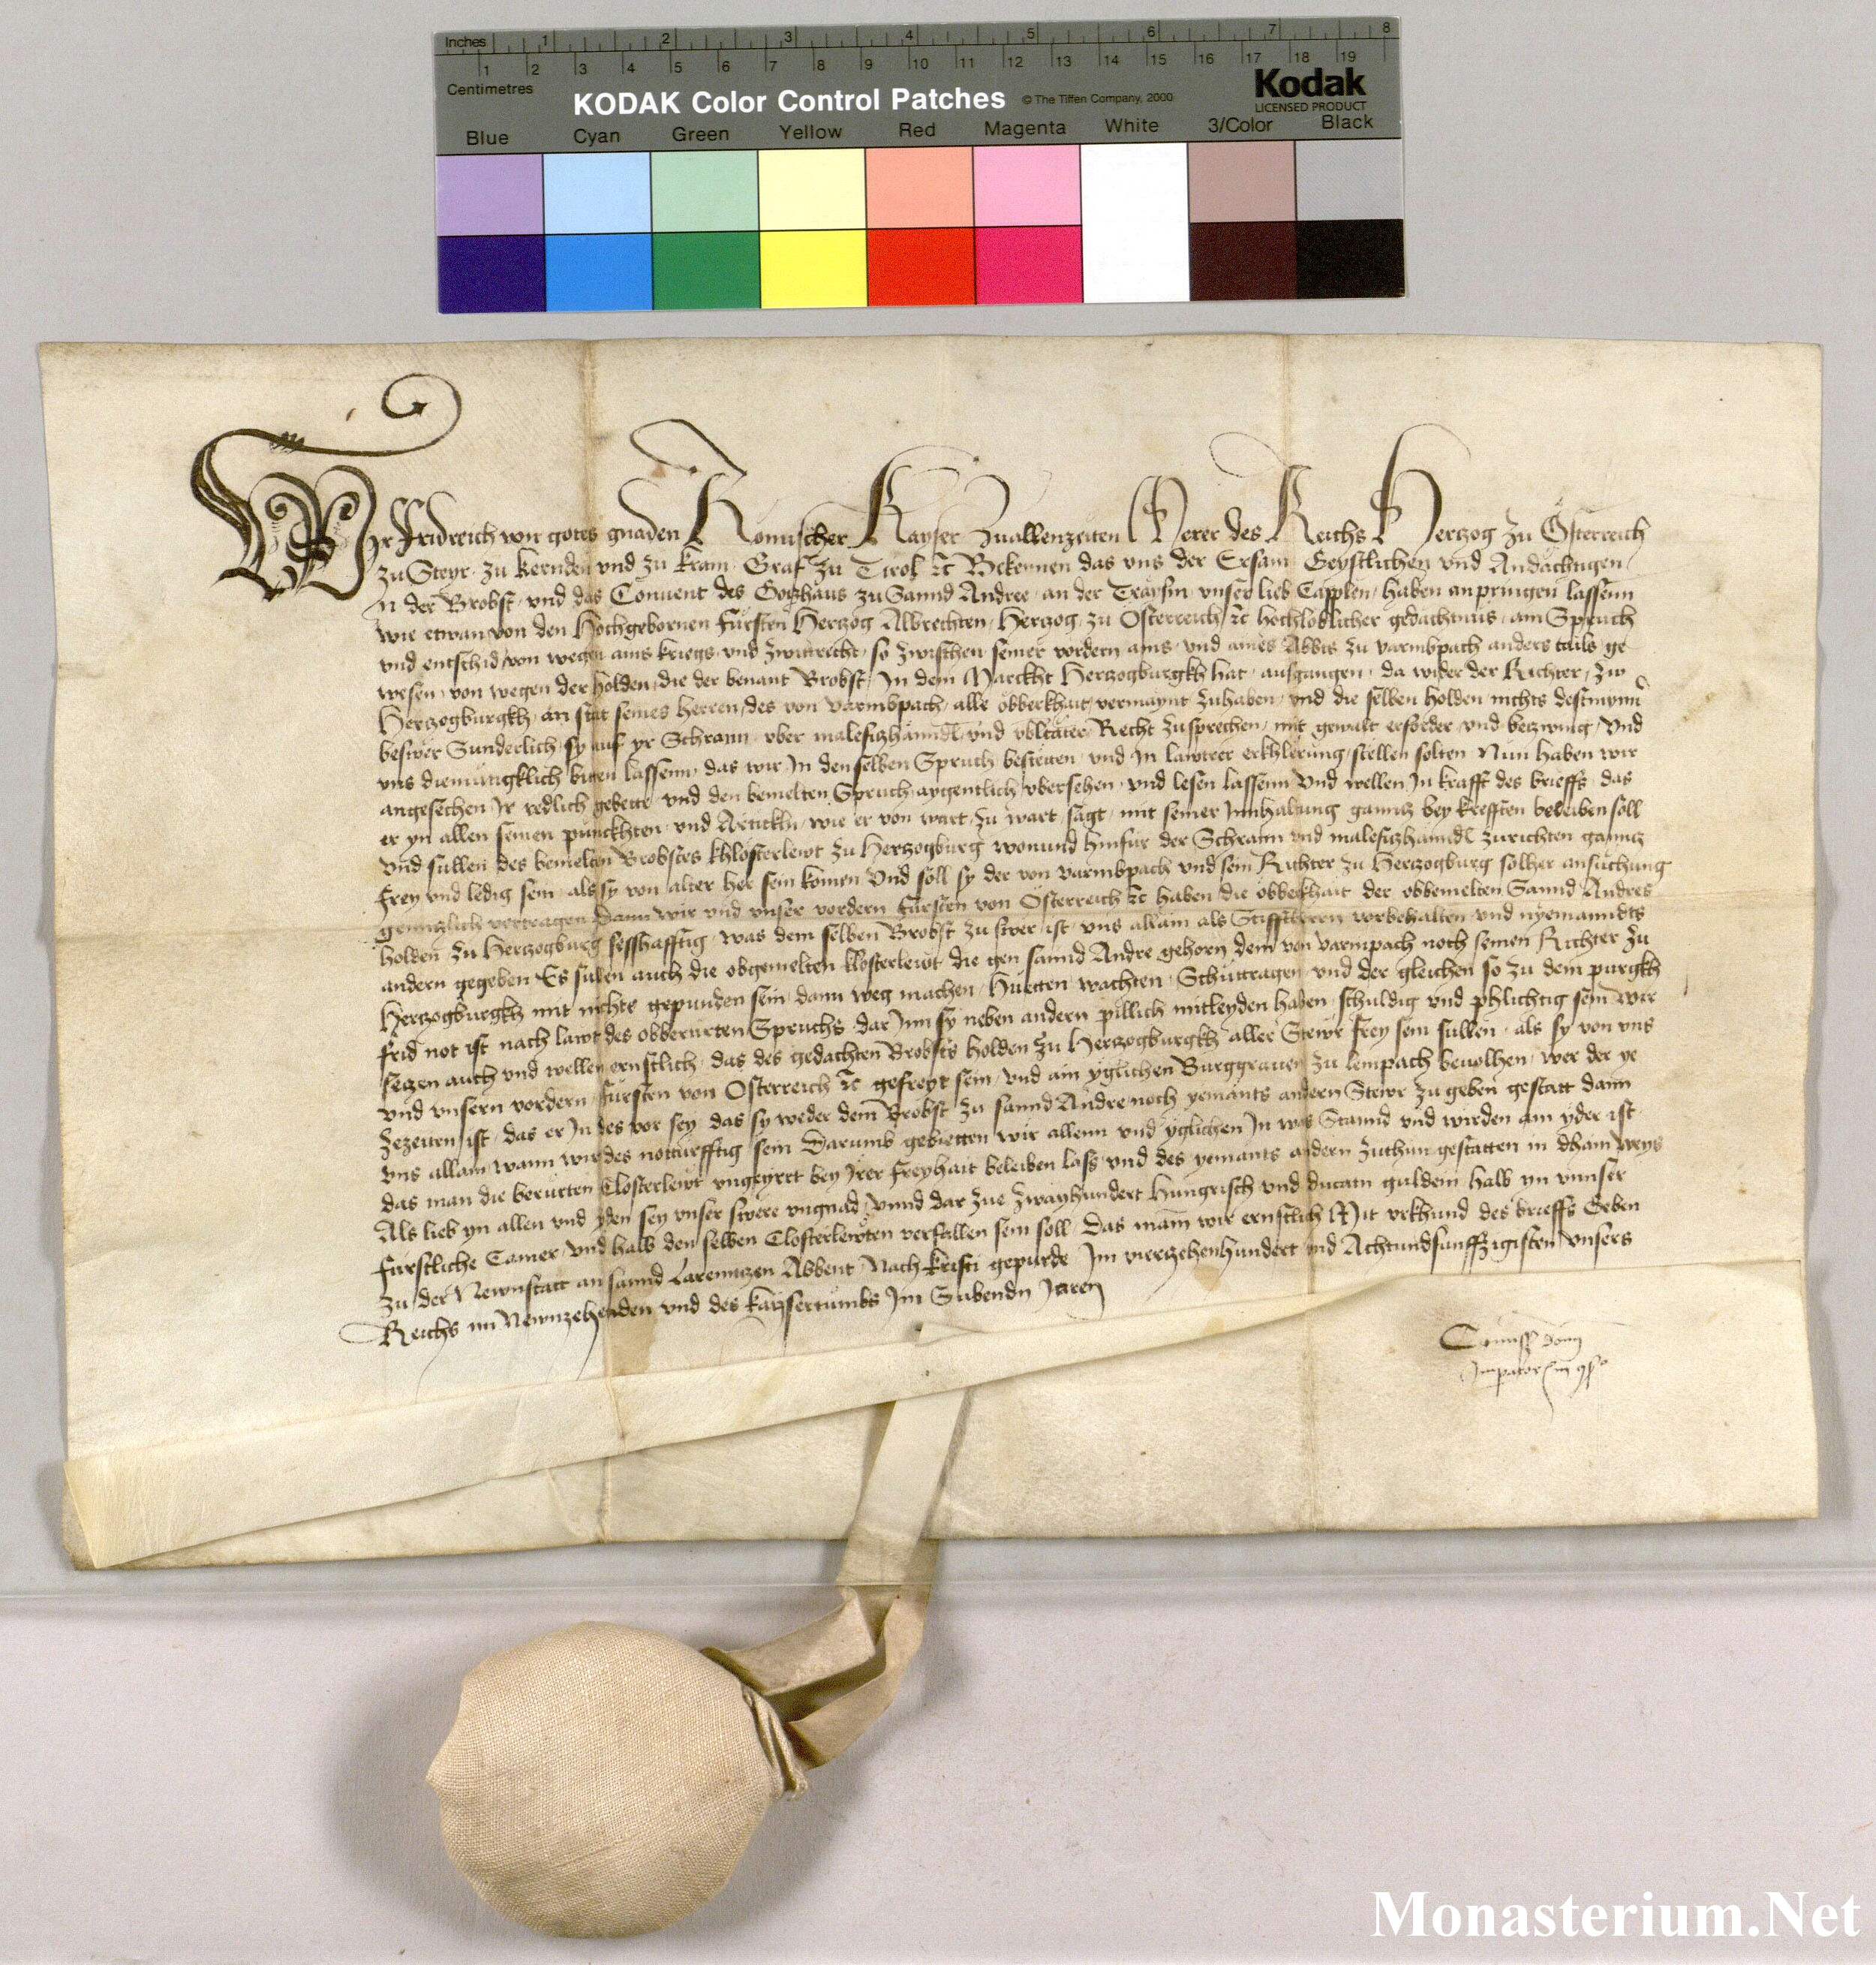 Inches 1 2 3 4 5 6 7 8
1 2 3 4 5 6 7 8 9 10 11 12 13 14 15 16 17 18 19
Centimetres
KODAK Color Control Patches © The Tiffen Company, 2000 Kodak
LICENSED PRODUCT
Blue Cyan Green Yellow Red Magenta White 3/Color Black
Wir Fridreich von gotes gnaden Romischer Kayser Zuallenzeiten Merer des Reichs Hertzog zu Österreich
zu Steyr zu Kernden und zu Krain Graf zu Tirol etc Bekennen das uns der Ersam Geystlichen und Andächtigen
N der Brobst und das Convent des Gotzhaus zu Sannd Andree an der Traysm unser lieb Capplen haben anpringen lassenn
wie etwan von den Hochgebornen fürsten Hertzog Albrechten Hertzog zu Österreich etc hochloblicher gedächtnüs ain Spruch
und entschid von wegen ains kriegs und zwitrecht so zwischen seiner vordern ains und aines Abbts zu varmbpach anders tails ge
wesen von wegen der holden die der benant Brobst In dem Marckht Hertzogburgkh hat ausgangen da wider der Richter zw
Hertzogburgkh an stat seines Herren des von varmbpach alle obberkhait vermaynt zuhaben und die selben holden nichts destmynn
beswer Sunderlich sy auf yr Schrann uber malefitzhänndl und ubltäter Recht zusprechen mit gewalt erforder und betzwing Und
uns diemüttigklich bitten lassenn das wir In denselben Spruch bestetten und In lawtrer erkhlerung stellen solten Nun haben wir
angesechen Ir redlich gebette und den bemelten Spruch aygentlich ubersehen und lesen lassenn Und wellen In krafft des brieffs das
er yn allen seinen punckhten und Artickln wie er von wart zu wart sagt mit seiner Innhaltung ganntz bey krefften beleiben soll
Und süllen des bemelten Brobsts khlosterlewt zu Hertzogburg wonund hinfür der Schrann und malefitzhanndl zurichten ganntz
frey und ledig sein als sy von alter her sein komen Und soll sy der von varmbpach und sein Richter zu Hertzogburg solher ansüchung
genntzlich vertragen Dann wir und unser vordern fürsten von Österreich etc haben die obberkhait der obbemelten Sannd Andres
holden zu Hertzogburg sesshafftig was dem selben Brobst zu swer ist uns allain als Stifftherrn vorbehalten und nyemanndts
andern gegeben Es sullen auch die obgemelten klosterlewt die gen sannd Andre gehorn dem von varmpach noch seinen Richter zu
Hertzogburgkh mit nichte gepunden sein dann weg machen Huetten wachten Schüttragen und der gleichen so zu dem purgkh
frid not ist nach lawt des obberurten Spruchs dar Inn sy neben andern pillich mitleyden haben schuldig und phlichtig sein Wir
setzen auch und wellen ernstlich das des gedachten Brobsts holden zu Hertzogburgkh aller Stewr frey sein sullen als sy von uns
und unsern vordern fürsten von Osterreich etc gefreyt sein und ain yglichen Burggraven zu lempach bevolhen wer der ye
zezeitten ist das er In des vor sey das sy weder dem Brobst zu sannd Andre noch yemants andern Stewr zu geben gestatt dann
uns allain wann wir des notturfftig sein Darumb gebietten wir allenn und yglichen In was Stannd und wirden ain yder ist
das man die berurten Closterlewt ungeyrrt bey Irer freyhait beleiben lass und des yemants andern zuthun gestatten in dhain weys
Als lieb yn allen und yden sey unser swere ungnad Unnd dar zue zwayhundert Hungrisch und ducatn guldein halb yn unnser
fürstliche Camer und halb den selben Closterlewten verfallen sein soll Das main wir ernstlich Mit urkhund des brieffs Geben
zu der Newnstatt an sannd Larenntzen Abbent Nach kristi gepurde Im viertzehenhundert und Achtundfunfftzigisten Unsers
Reichs im Newnzehenden und des kaysertumbs Im Sibendn Jaren
Monasterium.Net